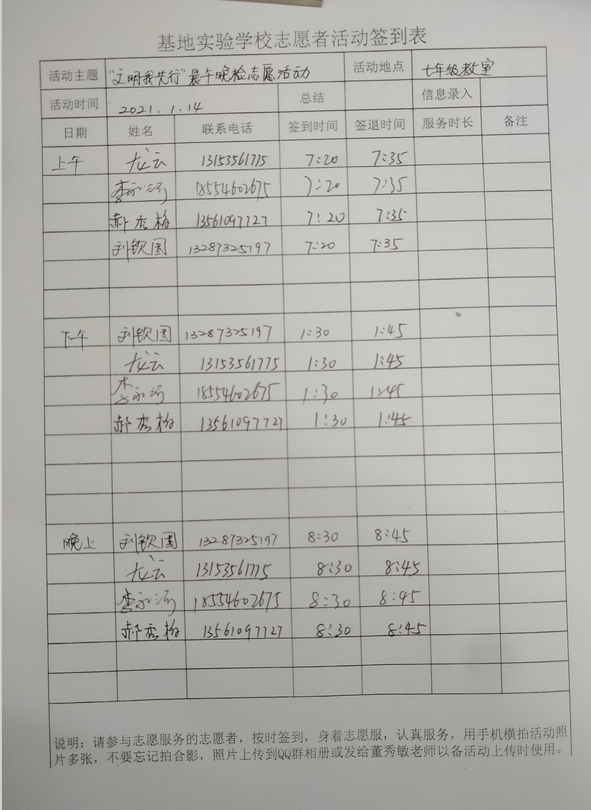 基地实验学校志愿者活动签到表
活动主题 "文明我先行"晨午晚检志愿活动 活动地点 七年级教室
活动时间 2021.1.14 总结 信息录入
日期 姓名 联系电话 签到时间 签退时间 服务时长 备注
上午 龙云 13153561775 7:20 7:35
李永河 18554602675 7:20 7:35
郝秀梅 13561097727 7:20 7:35
刘钦国 13287325197 7:20 7:35
下午 刘钦国 13287325197 1:30 1:45
龙云 13153561775 1:30 1:45
李永河 18554602675 1:30 1:45
郝秀梅 13561097727 1:30 1:45
晚上 刘钦国 13287325197 8:30 8:45
龙云 13153561775 8:30 8:45
李永河 18554602675 8:30 8:45
郝秀梅 13561097727 8:30 8:45
说明：请参与志愿服务的志愿者，按时签到，身着志愿服，认真服务，用手机横拍活动照
片多张，不要忘记拍合影，照片上传到QQ群相册或发给董秀敏老师以备活动上传时使用。